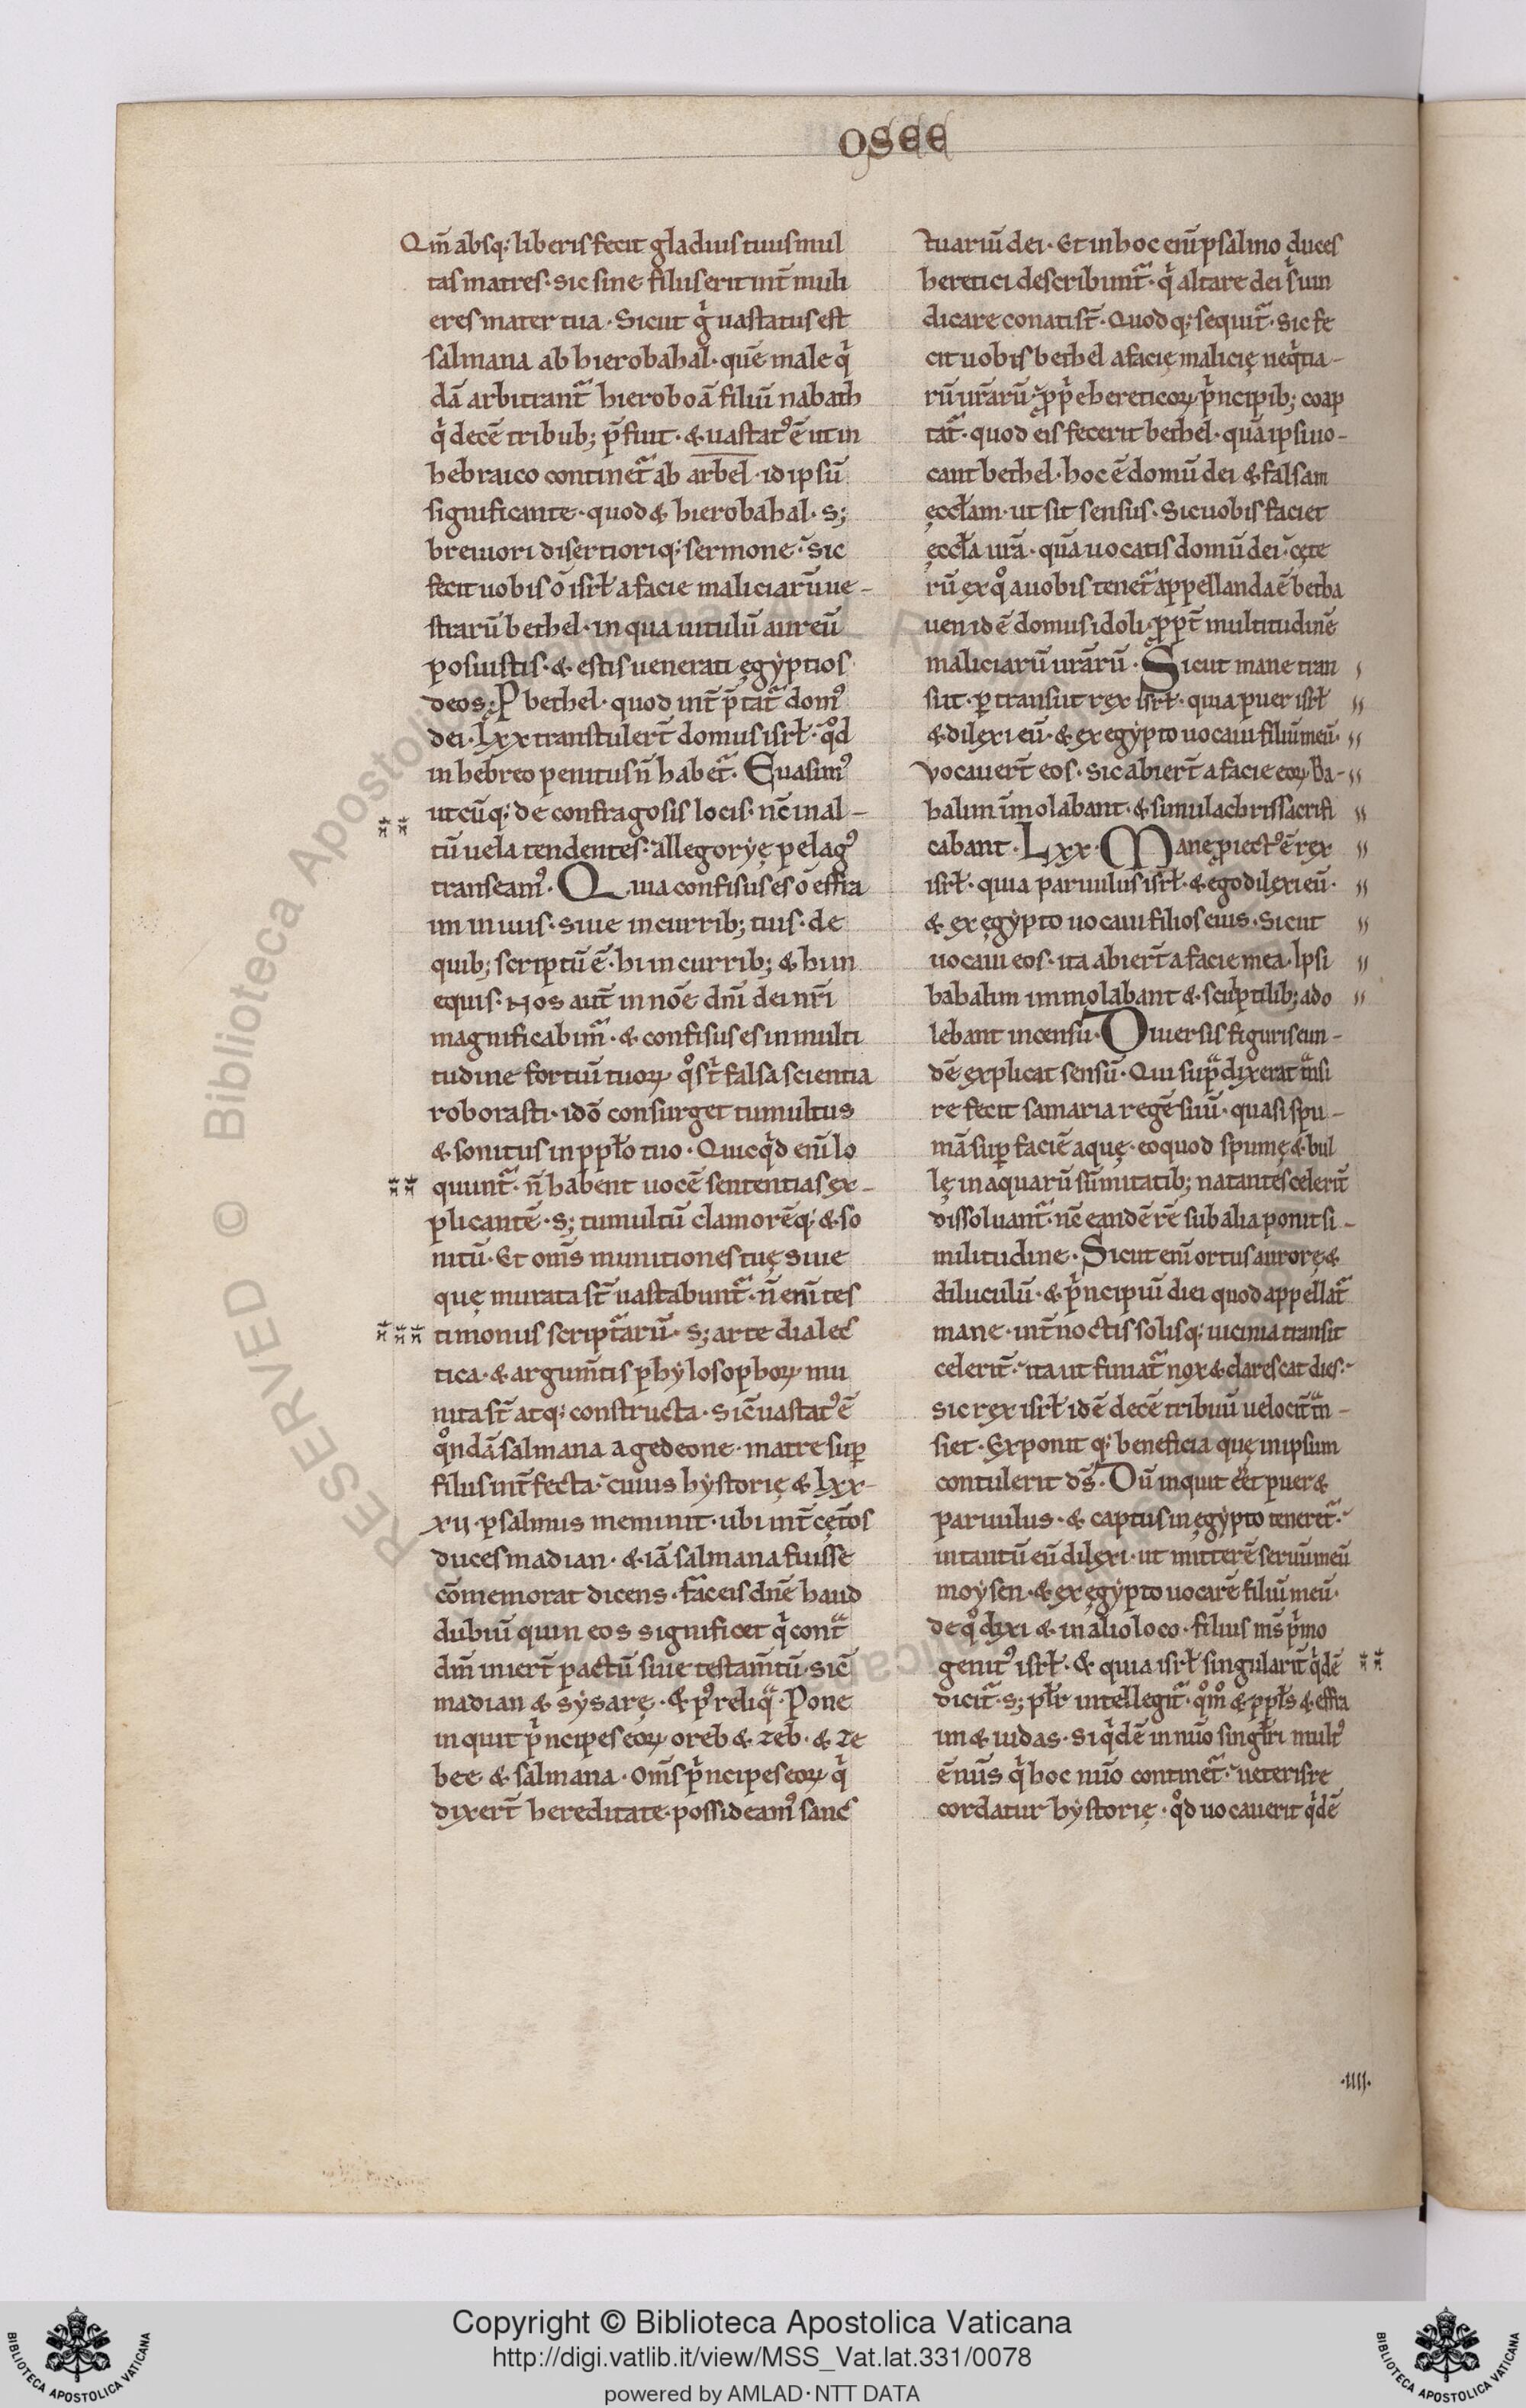 OSEE
Qm̄ absq; liberis fecit gladius tuus mul
tas matres· sic sine filiis erit int̄ muli
eres mater tua· Sicut g̊ uastatus est
salmana ab hierobahal· quē male q̇
dā arbitrant᷑ hieroboā filiū nabath
q̇ decē tribub; p̄fuit· & uastat᷒ ē ut in
hebraico continet᷑ ab arbel· id ipsū
significante· quod & hierobahal· S;
breuiori disertioriq; sermone· sic
fecit uobis ō isrł a facie maliciarū ue-
strarū bethel· in qua uitulū aureū
posuistis· & estis uenerati ęgyptios
deos· P bethel· quod int̄p̄tat᷑ dom᷒
dei· Lxx transtulert̄ domus isrł· qd̊
in hebreo penitus n̄ habet᷑· Euasim᷒
utcūq; de confragosis locis· nc̄ in al-
tū uela tendentes· allegoryę pelag᷒
transeam᷒· Quia confisus es ō effra
im in uiis· siue in currib; tuis· de
quib; scriptū ē· hi in currib; & hi in
equis· Nos aut̄ in nōe dn̄i dei nr̄i
magnificabim᷑· & confisus es in multi
tudine fortiū tuoꝝ q̊s t̄ falsa scientia
roborasti· idō consurget tumultus
& sonitus in ppło tuo· Quicq̇d eni̅ lo
quunt᷑· n̄ habent uocē sententias ex-
plicantē· S; tumultū clamorēq; & so
nitū· Et om̄s munitiones tuę siue
quę murata st̄ uastabunt᷑· n̄ eni̅ tes
timoniis script᷑arū· S; arte dialec̄
tica· & argum̄tis phylosophoꝝ mu
nita st̄ atq; constructa· Sic̄ uastat᷒ ē
q̊ndā salmana a gedeone· matre suꝑ
filiis int̄fecta· cuius hystorię & lxx-
xij· psalmus meminit· ubi int̄ cęt̄os
duces madian· & iā salmana fuisse
cōmemorat dicens· fac eis dn̄e haud
dubiū quin eos significet q̇ contᷓ
dm̄ iniert̄ pactū siue testam̄tū· sic̄
madian & sysarę· & p᷒ reliqᷓ· Pone
inquit p̊ncipes eoꝝ oreb & zeb· & ze
bee & salmana· Om̄s p̊ncipes eoꝝ q̇
dixert̄ hereditate possideam᷒ sanc̄
tuariū dei· Et in hoc eni̅ psalmo duces
heretici describunt᷑· q̇ altare dei s̊uin
dicare conati st̄· Quodq; sequit᷑· Sic fe
cit uobis bethel a facie malicię neq̇tia-
rū urarū· ꝓpe hereticoꝝ p̊ncipib; coap
tat᷑· quod eis fecerit bethel· quā ipsi uo-
cant bethel· hoc ē domū dei & falsam
ęccłam· ut sit sensus· Sic uobis faciet
ęccła ura· quā uocatis domū dei· cęte
rū ex q̊ a uobis tenet᷑ appellanda ē betha
uen id ē domus idoli ꝓpt̄ multitudinē
maliciarū urarū· Sicut mane tran
siit· ptransiit rex isrł· quia puer isrł
& dilexi eū· & ex egypto uocaui filiū meū·
Vocauert̄ eos· sic abiert̄ a facie eoꝝ· Ba-
halim īmolabant· & simulachris sacrifi
cabant· Lxx· Mane ꝓiect᷒ ē rex
isrł· quia paruulus isrł· & ego dilexi eū·
& ex ęgypto uocaui filios eius· Sicut
uocaui eos· ita abiert̄ a facie mea· Ipsi
bahalim immolabant & sculptilib; ado
lebant incensū· Diuersis figuris eun-
dē explicat sensū· Qui supᷓ dixerat tᷓnsi
re fecit samaria regē suū· quasi spu-
mā suꝑ faciē aquę· eo quod spumę & bul
lę in aquarū sūmitatib; natantes celerit̄
dissoluant᷑· nc̄ eandē rē sub alia ponit si-
militudine· Sicut eni̅ ortus aurorę &
diluculū· & p̊ncipiū diei quod appellat᷑
mane· int̄ noctis solisq; uicinia transit
celerit̄· ita ut finiat᷑ nox & clarescat dies·
sic rex isrł id ē decē tribuū uelocit̄ tᷓn-
siet· Exponit q; beneficia quę in ipsum
contulerit ds̄· Dū inquit eet puer &
paruulus· & captus in ęgypto teneret᷑·
in tantū eū dilexi· ut mitterē seruū meū
moysen· & ex ęgypto uocarē filiū meū·
de q̊ dixi & in alio loco· filius ms̄ p̊mo
genit᷒ isrł· & quia isrł singularit̄ q̇dē
dicit᷑· S; płr intellegit᷑· q̊m̊ & ppłs & effra
im & iudas· Siq̇dē in nūo singłri mult᷒
ē nu̅s q̇ hoc nūo continet᷑· ueteris re
cordatur hystorię· qd̊ uocauerit q̇dē
·IIII·
Copyright © Biblioteca Apostolica Vaticana
http://digi.vatlib.it/view/MSS_Vat.lat.331/0078
powered by AMLAD·NTT DATA